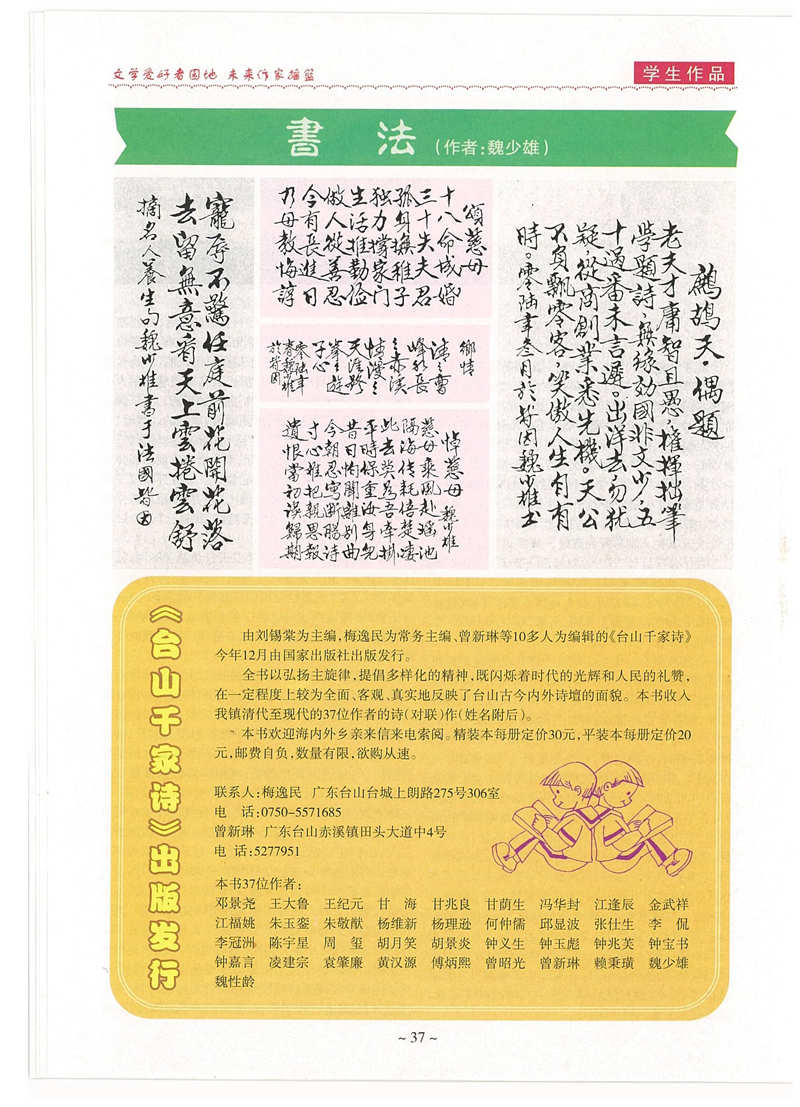 文学爱好者园地 未来作家摇篮
学生作品
書法 (作者:魏少雄)
鹧鸪天·偶题
老夫才庸智且愚,權揮拙筆
學題詩。無緣効國非文少,五
十過番未言遲。出洋去,勿犹
疑,從商創業悉先機。天公
不負飄零客,笑傲人生自有
時。零陆年叁月於皆因魏少雄书
頌慈母
十八命成婚
三十失夫君
孤身撫稚子
独力撐家门
生活推勤俭
做人從善忍
今有長進日
乃母教悔諄
鄉情
峰水長
之赤溪
天涯路
子心
零陆年
春魏少雄
於皆因
悼慈母 魏少雄
慈母乘風赴瑶池
隔海传耗倍楚凄
此去莫為吾牵掛
平時保重
昔日怕聞離别曲
今朝忍写断腸诗
寸心难把親恩報
遺恨當初误歸期
寵辱不驚任庭前花開花落
去留無意看天上雲捲雲舒
摘名人養生句魏少雄書于法國皆因
《台山千家诗》出版发行
由刘锡棠为主编,梅逸民为常务主编、曾新琳等10多人为编辑的《台山千家诗》
今年12月由国家出版社出版发行。
全书以弘扬主旋律,提倡多样化的精神,既闪烁着时代的光辉和人民的礼赞,
在一定程度上较为全面、客观、真实地反映了台山古今内外诗坛的面貌。本书收入
我镇清代至现代的37位作者的诗(对联)作(姓名附后)。
本书欢迎海内外乡亲来信来电索阅。精装本每册定价30元,平装本每册定价20
元,邮费自负,数量有限,欲购从速。
联系人:梅逸民 广东台山台城上朗路275号306室
电 话:0750-5571685
曾新琳 广东台山赤溪镇田头大道中4号
电 话:5277951
本书37位作者:
邓景尧 王大鲁 王纪元 甘 海 甘兆良 甘荫生 冯华封 江逢辰 金武祥
江福姚 朱玉銮 朱敬猷 杨维新 杨理逊 何仲儒 邱显波 张仕生 李 侃
李冠洲 陈宇星 周 玺 胡月笑 胡景炎 钟义生 钟玉彪 钟兆芙 钟宝书
钟嘉言 凌建宗 袁肇廉 黄汉源 傅炳熙 曾昭光 曾新琳 赖秉璜 魏少雄
魏性龄
~ 37 ~